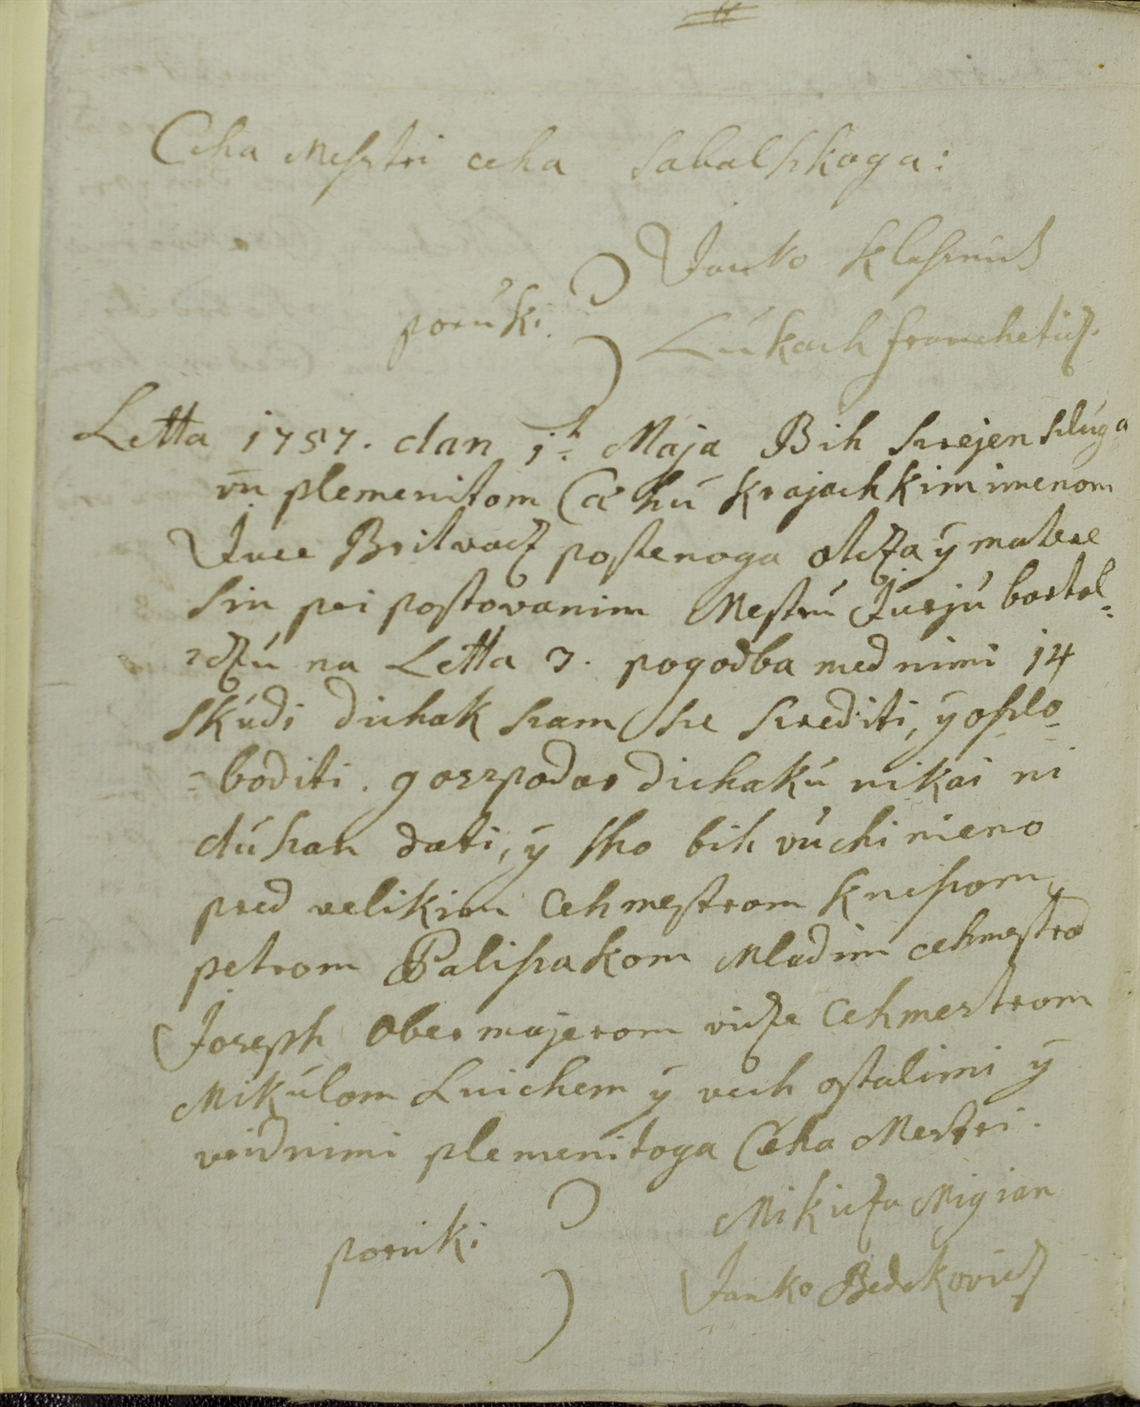 Ceha Mesztri ceha sabalskoga:
Janko Klasznich
porúki
Lúkach franchetich.
Letta 1757. dan 1. Maja Bih szrejen szlúga
vu plemenitom Céhú krajachkim imenom
Juce Brilvacz postenoga otcza ÿ matere
Sin pri postovanim Mestrú Jurjú bartol-
-czú na Letta 3. pogodba med nimi 14
skúdi dichak szam sze szrediti, ÿ oszlo-
-boditi. goszpodar dichakú nikai ni
dúsan dati, ÿ sto bih vúchinieno
pred velikim Cehmestrom knesom
petrom Palisakom Mladim cehmestro
Joseph Obermajerom vicze Cehmestrom
Mikúlom Luichem ÿ vech ostalimi ÿ
vridnimi plemenitoga Ceha Mestri.
poruki
Mikicza Migian
Janko Bedekovich